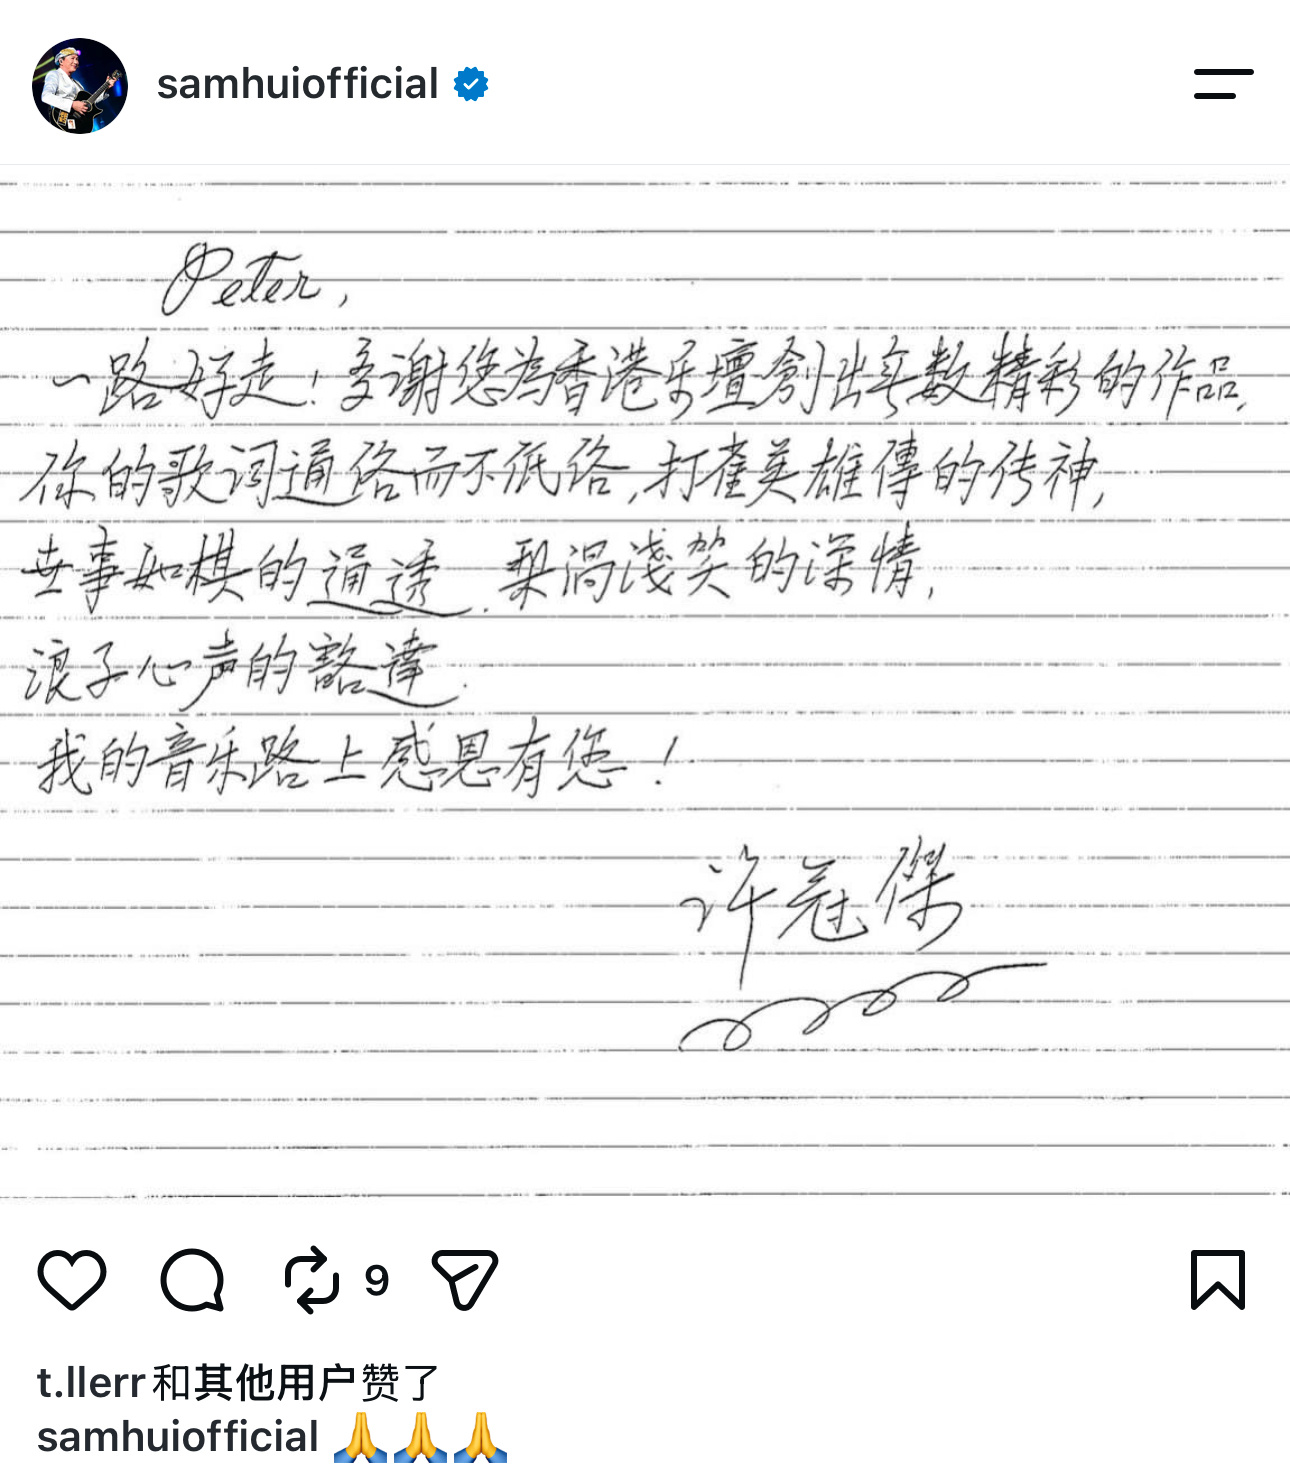 samhuiofficial
Peter,
一路好走！多謝您為香港乐壇創出无数精彩的作品,
你的歌词通俗而不低俗,打雀英雄傳的传神,
世事如棋的通透.梨渦淺笑的深情,
浪子心声的豁達.
我的音乐路上感恩有您！
许冠傑
9
t.llerr和其他用户赞了
samhuiofficial 🙏🙏🙏